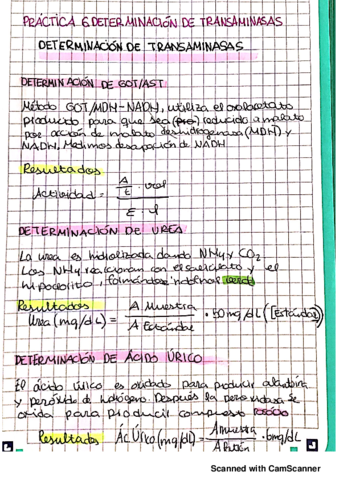 PRÁCTICA 6 DETERMINACIÓN DE TRANSAMINASAS
DETERMINACIÓN DE TRANSAMINASAS
DETERMINACIÓN DE GOT/AST
Método GOT/MDH-NADH, utiliza el oxalacetato
producto para que sea (pro) reducido a malato
por acción de malato deshidrogenasa (MDH) y
NADH. Medimos desaparición de NADH
Resultados
Actividad = A/t · vol / ε · l
DETERMINACIÓN DE UREA
La urea es hidrolizada dando NH4 y CO2
Los NH4 reaccionan con el salicilato y el
hipoclorito, formándose indofenol verde
Resultados
Urea (mg/dL) = A Muestra / A Estándar · 50 mg/dL ([Estándar])
DETERMINACIÓN DE ÁCIDO ÚRICO
El ácido úrico es oxidado para producir alantoína
y peróxido de hidrógeno. Después la peroxidasa se
oxida para producir compuesto rosado
Resultados Ác Úrico (mg/dL) = A muestra / A Patrón · 6mg/dL
Scanned with CamScanner